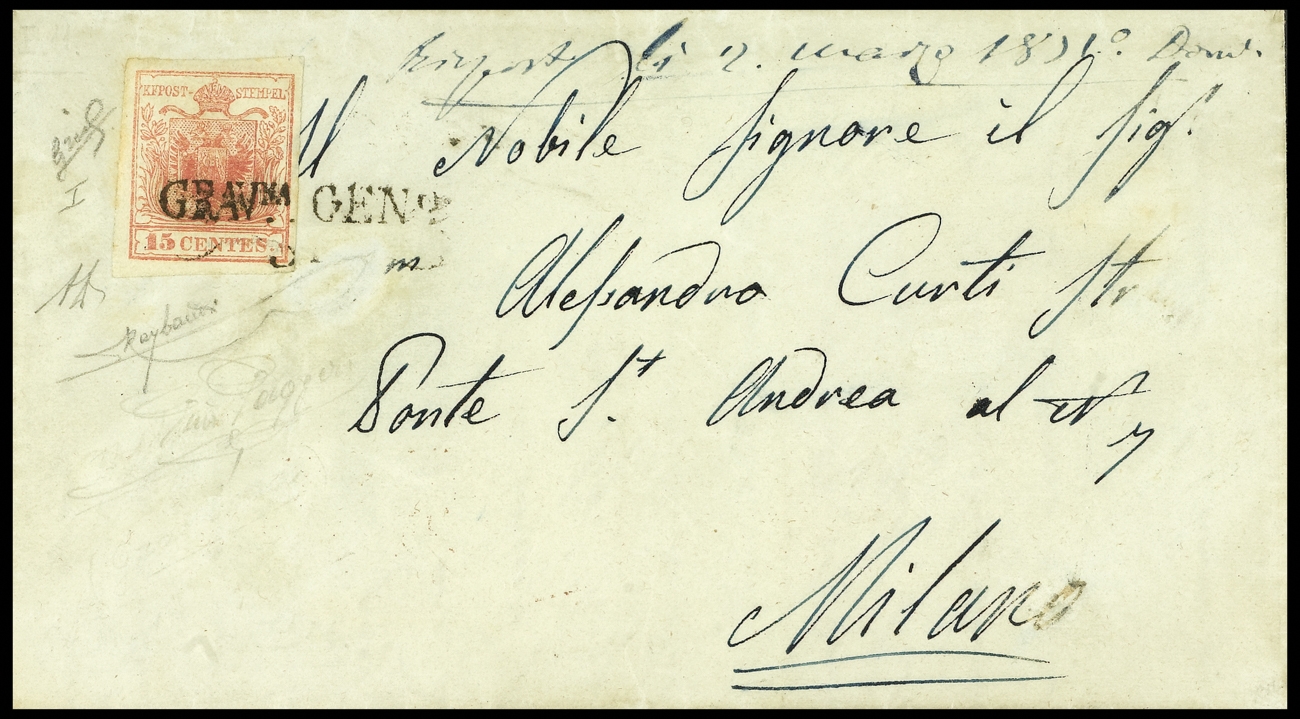 Risposto li 2. marzo 1851.° Dom.
KKPOST-STEMPEL
Al Nobile Signore il Sig.r
GRAV:NA
GRAV
GEN
15 CENTES
m
Alessandro Curti Str
Raybaudi
Ponte S.t Andrea al N
7
Milano
I